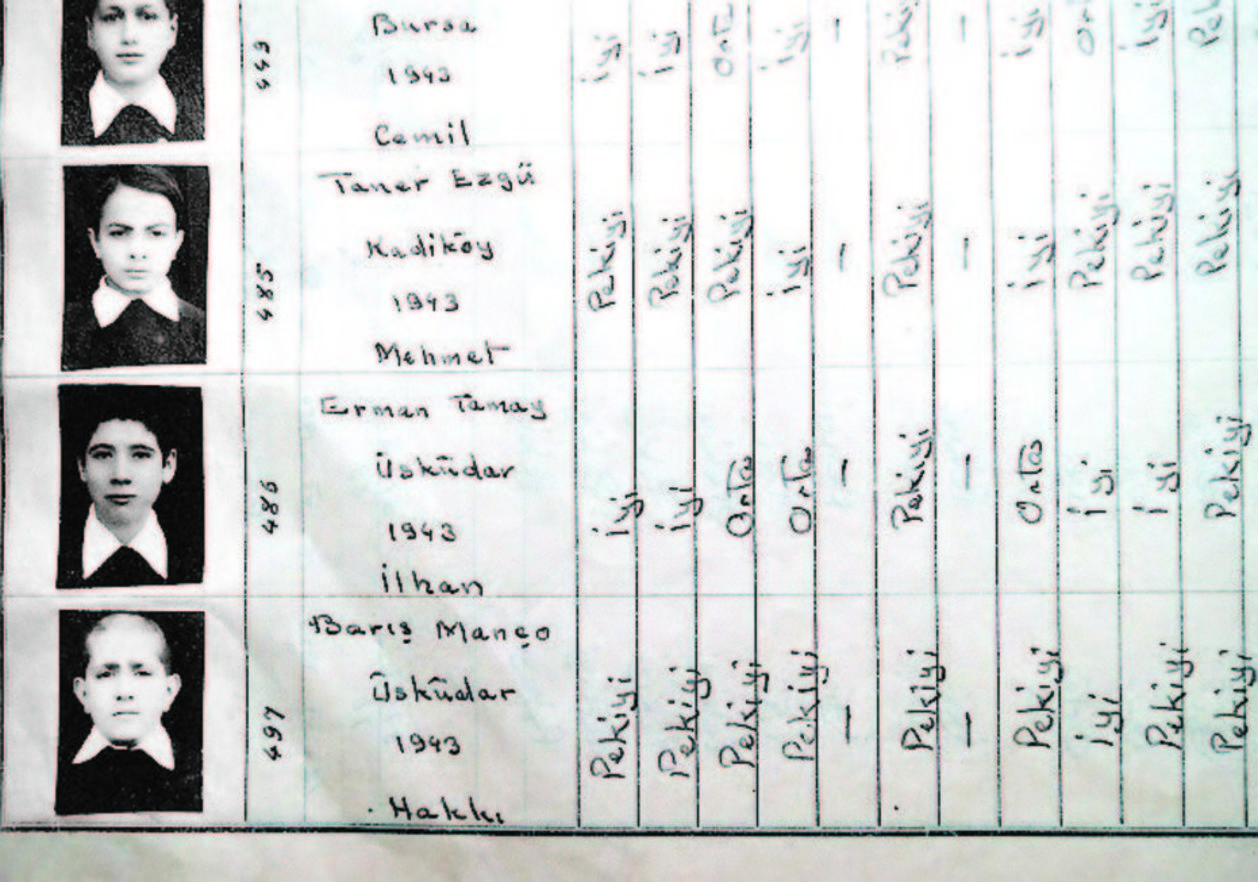 449
Bursa
1943
Cemil
iyi iyi Orta iyi — Pekiyi — iyi iyi
485
Taner Ezgü
Kadıköy
1943
Mehmet
Pekiyi Pekiyi Pekiyi iyi — Pekiyi — iyi Pekiyi Pekiyi Pekiyi
486
Erman Tamay
Üsküdar
1943
İlhan
iyi iyi Orta Orta — Pekiyi — Orta iyi iyi Pekiyi
497
Barış Manço
Üsküdar
1943
Hakkı
Pekiyi Pekiyi Pekiyi Pekiyi — Pekiyi — Pekiyi iyi Pekiyi Pekiyi